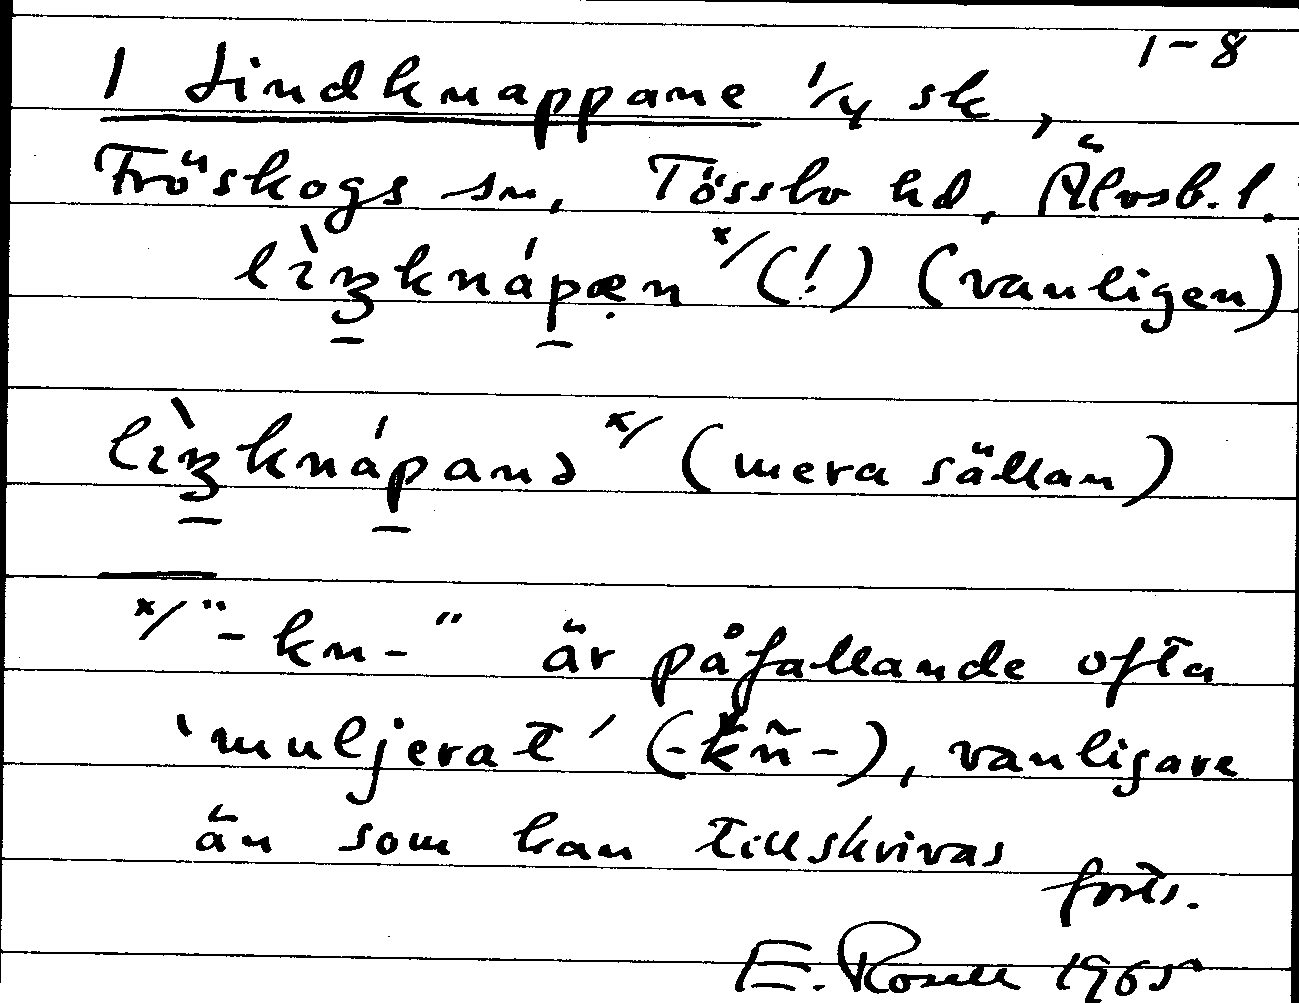 1-8
1 Lindknappane 1/4 sk,
Fröskogs sn, Tössbo hd, Älvsb. l.
lìꜫknápæn x/ (!) (vanligen)
lìꜫknápanə x/ (mera sällan)
x/ "-kn-" är påfallande ofta
'muljerat' (-k̆ñ-), vanligare
än som kan tillskrivas
forts.
E. Rosell 1965